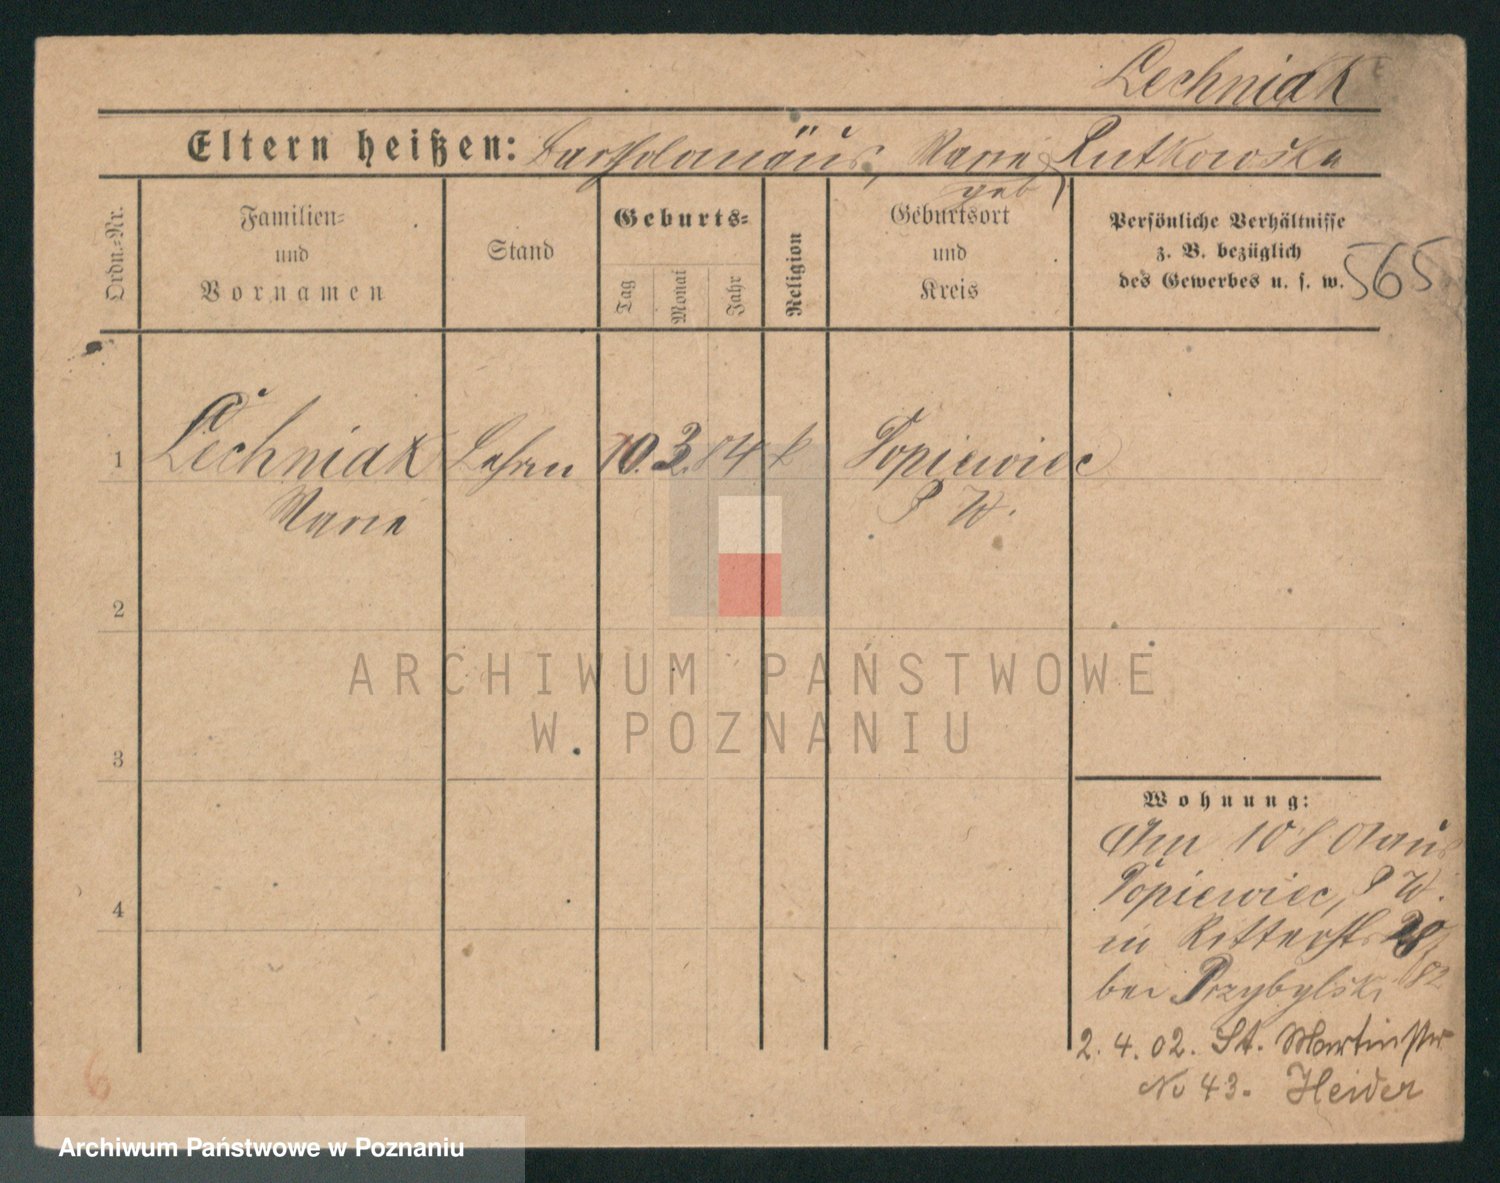 Lechniak
Eltern heißen: Bartholomäus, Marie geb Rutkowska
Ordn.=Nr.
Familien=
und
Vornamen
Stand
Geburts=
Tag
Monat
Jahr
Religion
Geburtsort
und
Kreis
Persönliche Verhältnisse
z. B. bezüglich
des Gewerbes u. s. w.
565
1 Lechniak 10. 3. 84 k Popiewiec
Marie P W.
2
3
4
Wohnung:
Am 10 8 aus
Popiewiec, P W.
in Ritterstr 28
bei Przybylski
2. 4. 02. St. Martinstr
No 43. Heider
6
ARCHIWUM PAŃSTWOWE
W POZNANIU
Archiwum Państwowe w Poznaniu